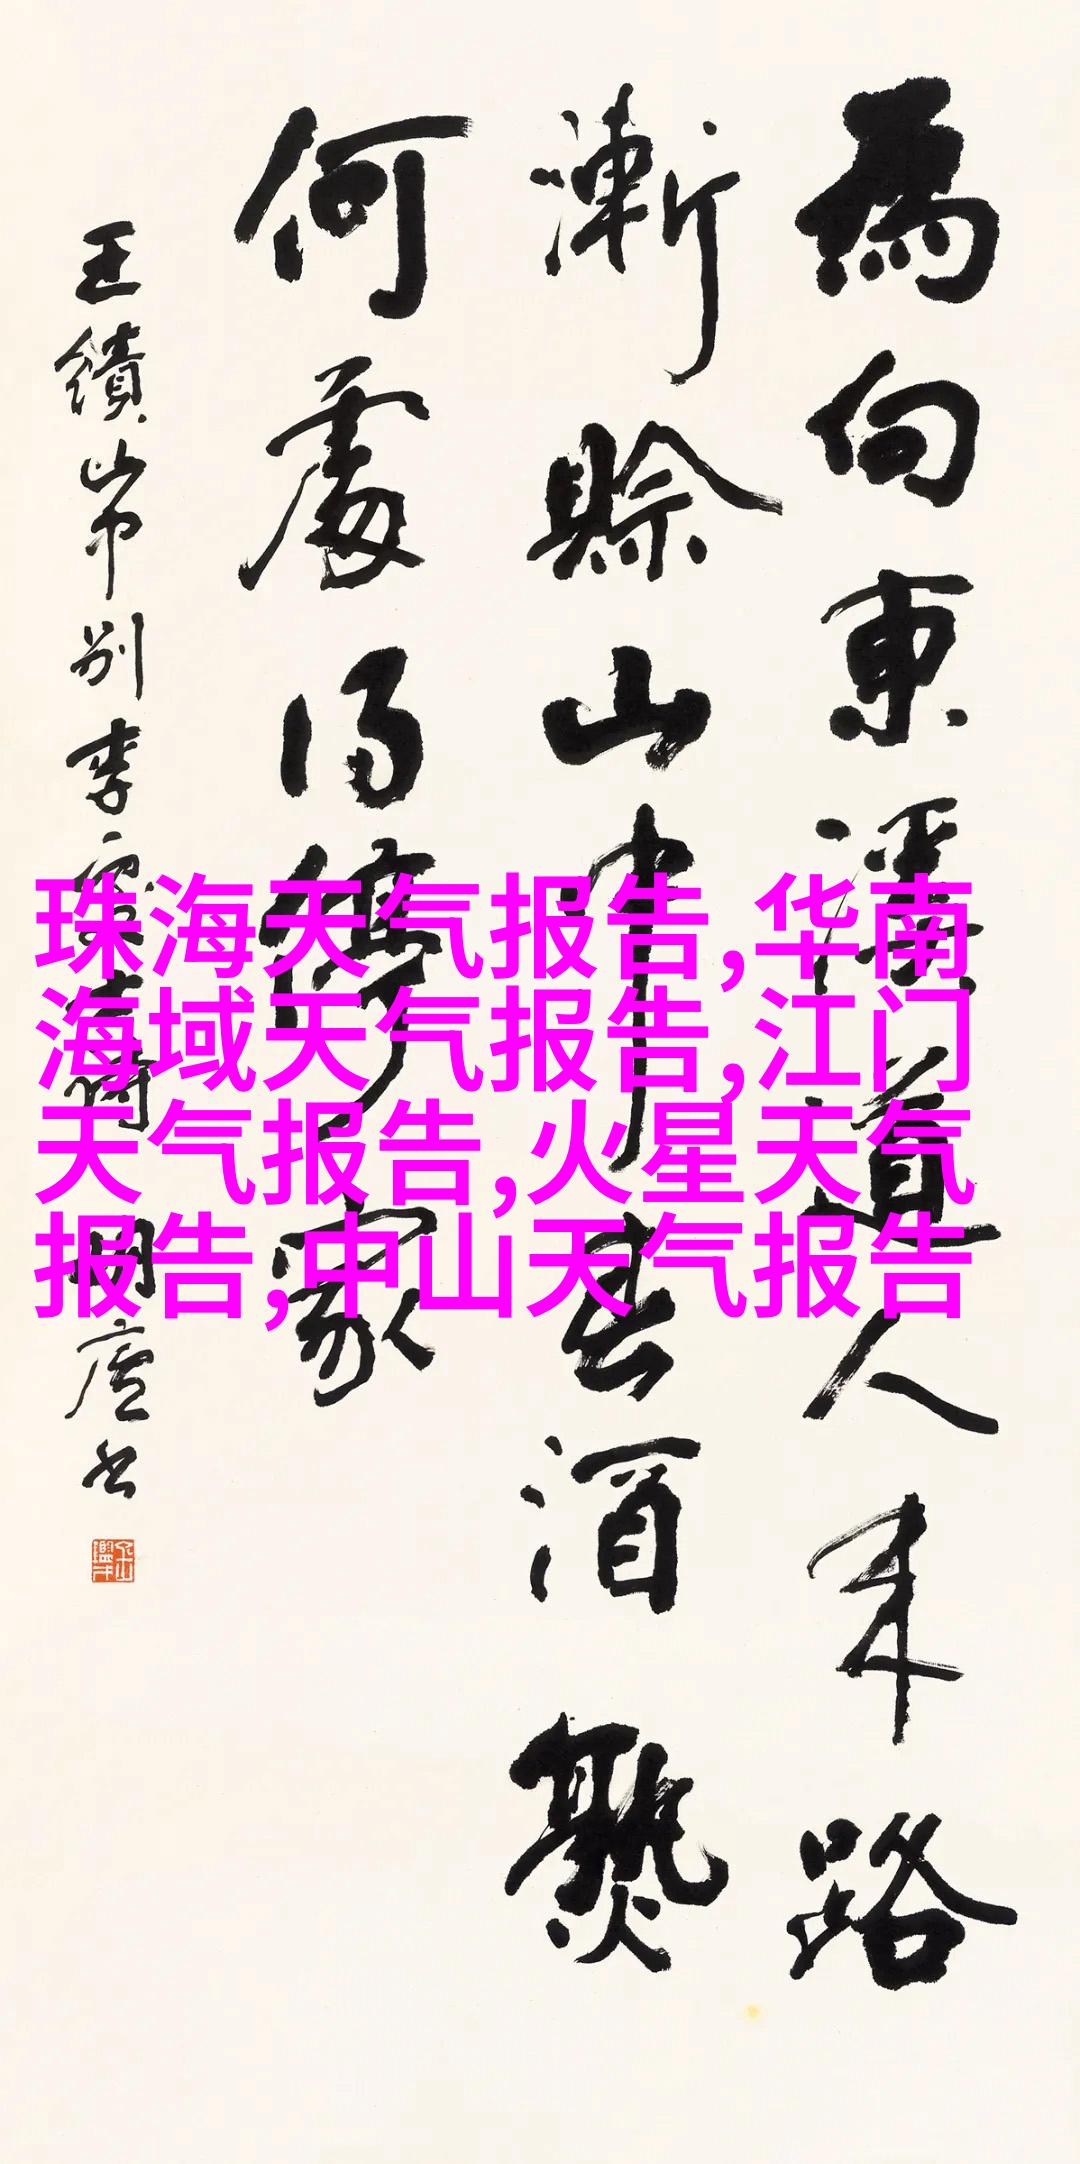 為向東溪道人來路
漸賒山中春酒熟
何處得停家
王績山中別李處士詩 廬書
珠海天气报告,华南
海域天气报告,江门
天气报告,火星天气
报告,中山天气报告